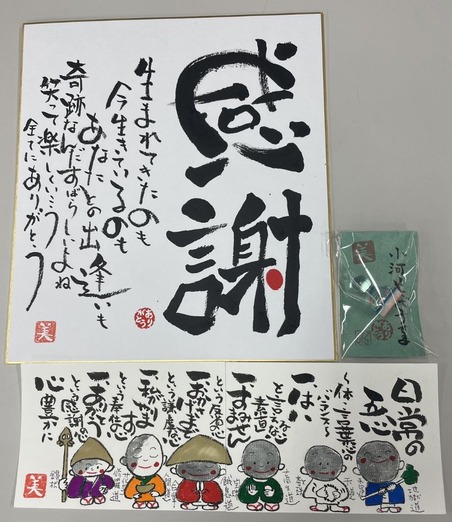 感謝
生まれてきたのも
今生きているのも
あなたとの出逢いも
奇跡なんだすばらしいよね
笑って楽しくいこう
全てにありがとう
ありがとう
美
美
日常の
五心
一、はい
と言える
素直な心
一、すみません
という反省の心
一、おかげさまで
という謙虚な心
一、私がします
という奉仕の心
一、ありがとう
という感謝の心
心豊かに
美